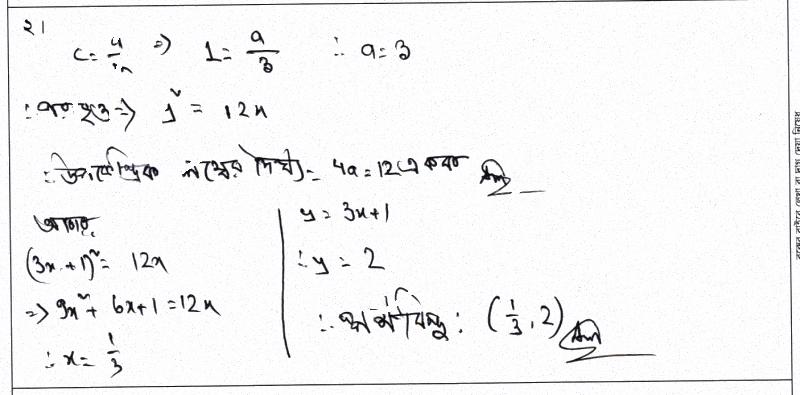 ২।
c = a/m ⇒ 1 = a/3 ∴ a = 3
∴ পরাবৃত্ত ⇒ y² = 12x
∴ উপকেন্দ্রিক লম্বের দৈর্ঘ্য = 4a = 12 একক Ans
আবার,
(3x + 1)² = 12x
⇒ 9x² + 6x + 1 = 12x
∴ x = 1/3
y = 3x + 1
∴ y = 2
∴ স্পর্শবিন্দু : (1/3, 2) Ans